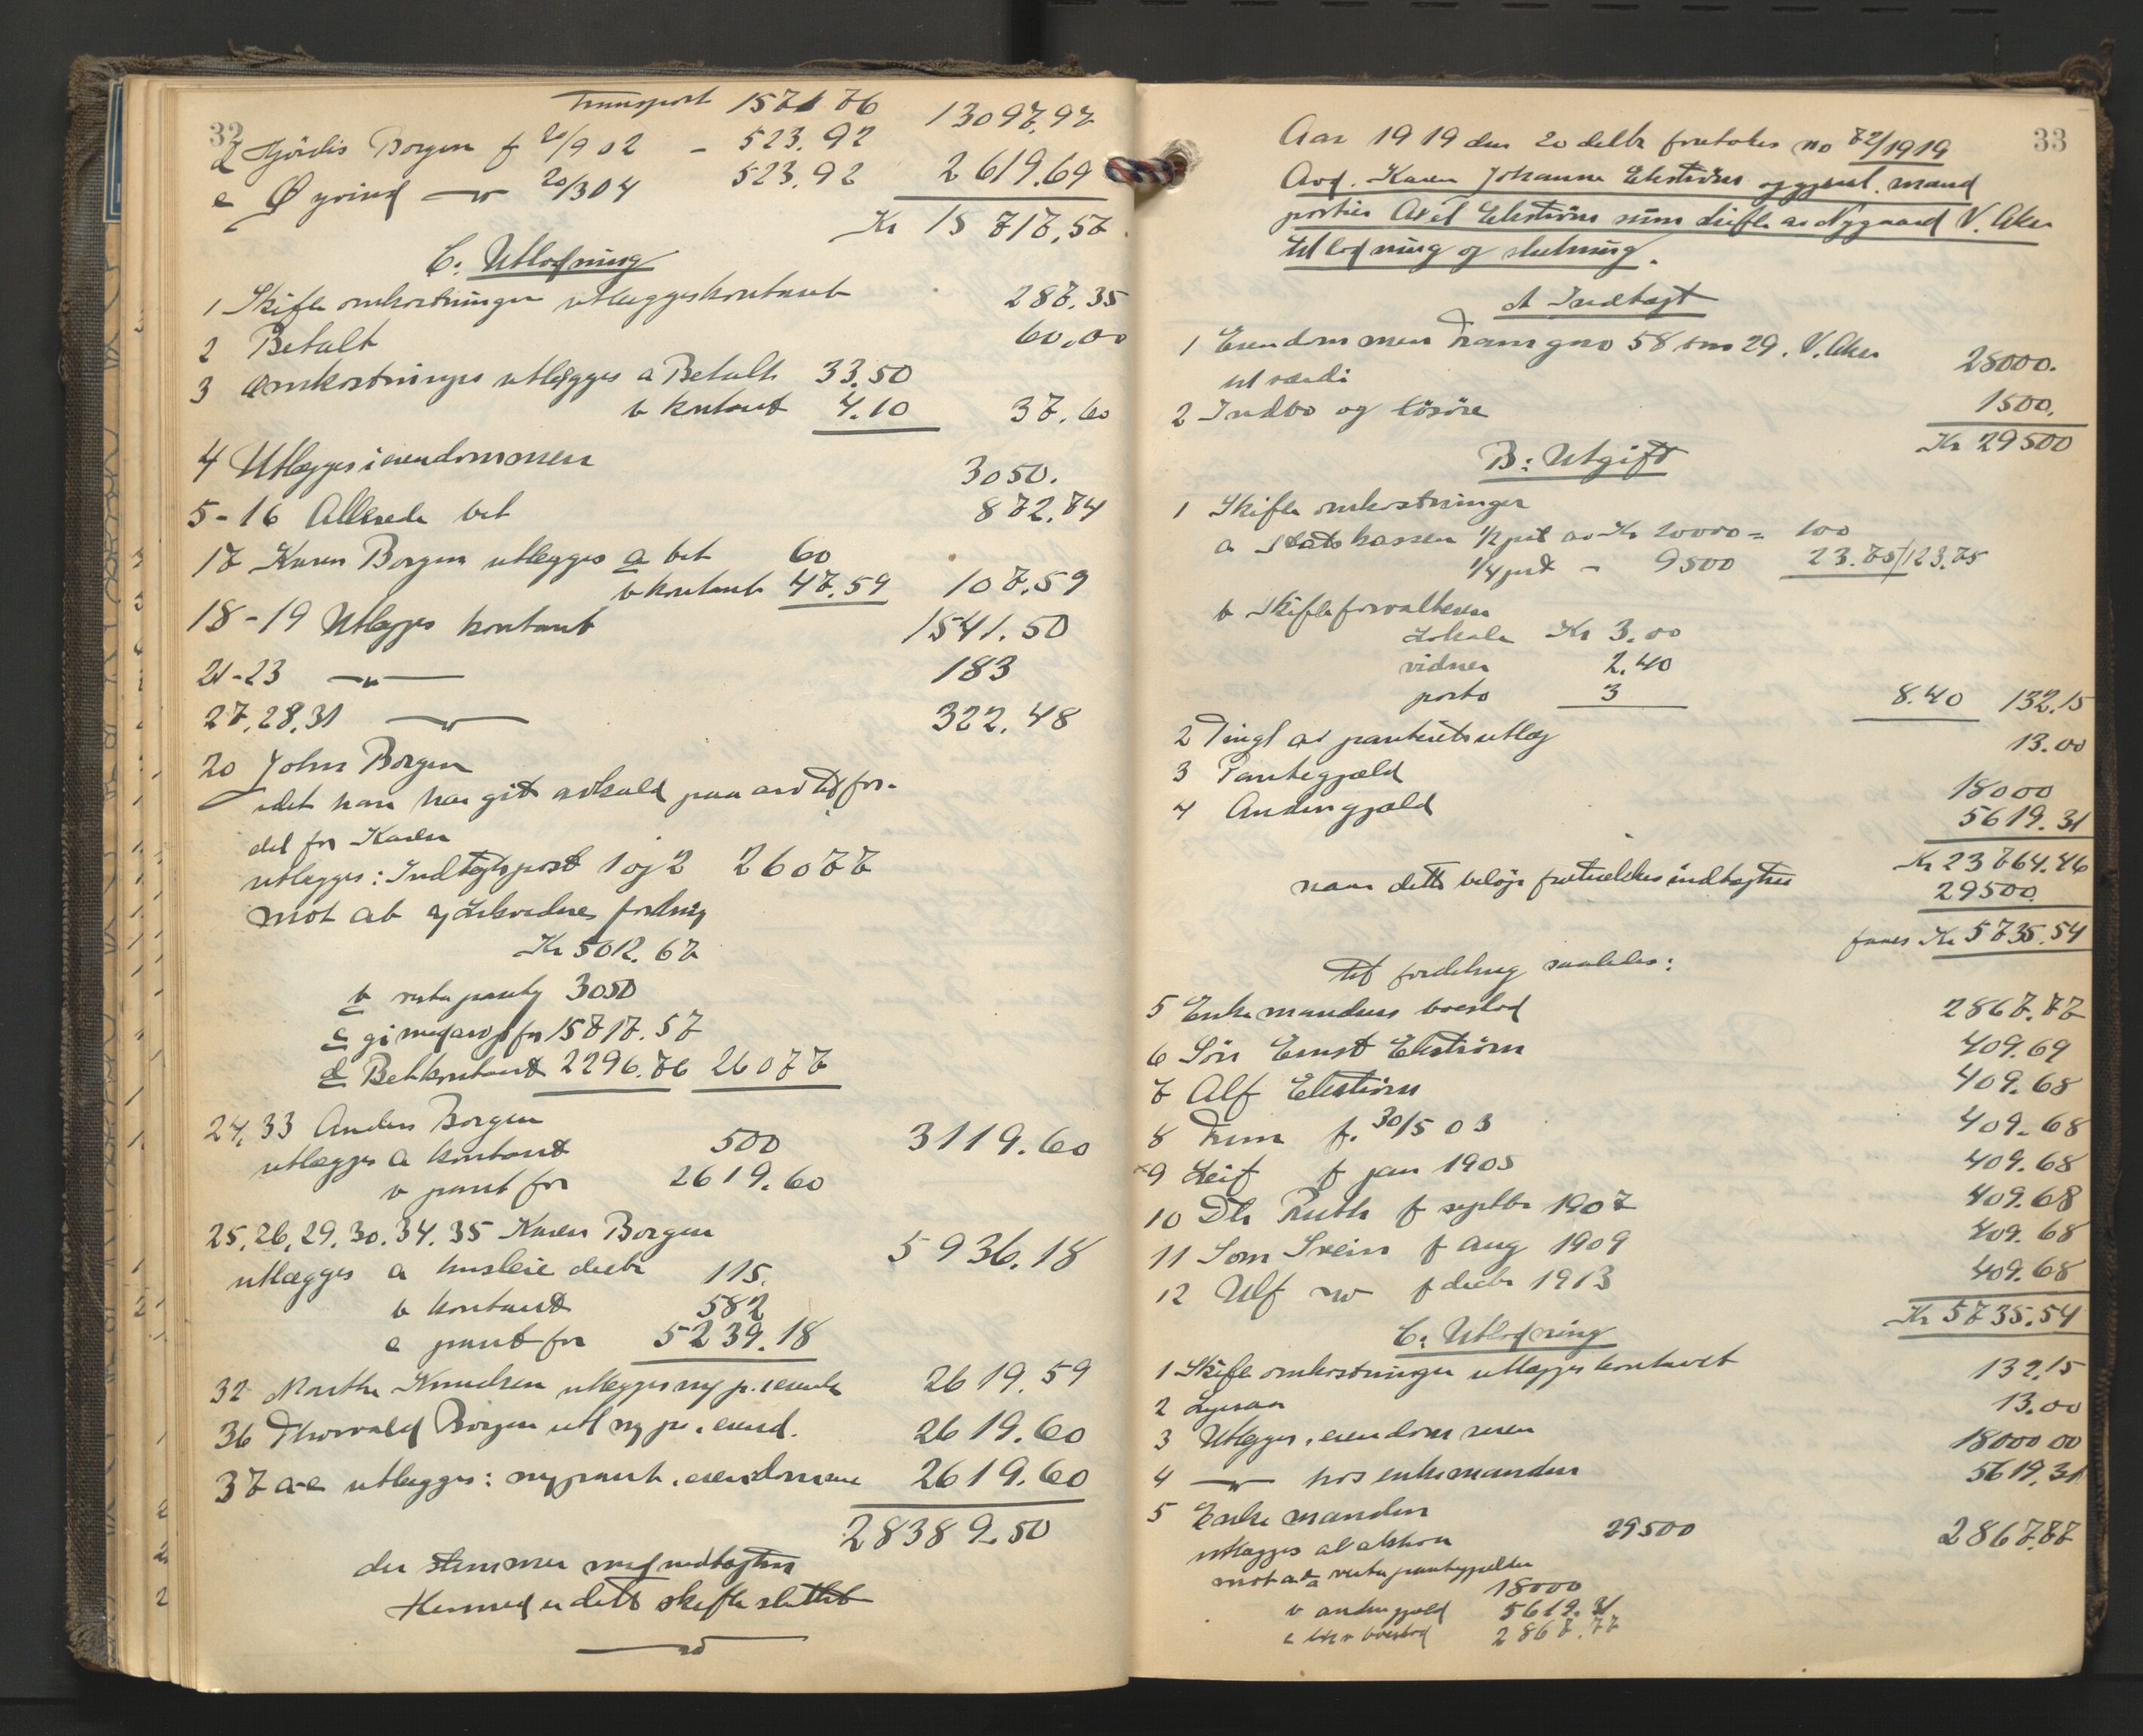 32
Transport 1571 76 13097,97
d Hjördis Borgen f 20/9 02 - 523.92
e Øyvind —"— 20/3 04 523.92 2619.69
Kr 15717,57
C: Utlodning
1 Skifte omkostninger utlægges kontant 287.35
2 Betalt 60,00
3 Omkostninger utlægges a Betalt 33.50
b kontant 4.10 37.60
4 Utlægges i eiendommen 3050.
5-16 Allerede bet 872.74
17 Karen Borgen utlægges a bet 60
b kontant 47.59 107.59
18-19 Utlægges kontant 1541.50
21-23 —"— 183
27,28,31 —"— 322.48
20 John Borgen
idet han har git avkald paa arv til for-
del for Karen
utlægges: Indtægtspost 1 og 2 26077
mot at
Kr 5012.67
b 3050
c 15717.57
d Bet kontant 2296.76 26077
24,33 Anders Borgen 3119.60
utlægges a kontant 500
b pant for 2619.60
25,26,29,30,34,35 Karen Borgen 5936.18
utlægges a husleie decbr 115.
b kontant 582
c pant for 5239.18
32 Marthe Knudsen utlægges ny p. i eiend 2619.59
36 Thorvald Borgen utl ny p. i eiend. 2619.60
37 a-e utlægges: ny pant i eiendommen 2619.60
28389.50
der stemmer med indtægten
Hermed er dette skifte sluttet
33
Aar 1919 den 20 decbr foretokes no 72/1919
Avd. Karen Johanne Ekströms og gjenl. mand
portier Axel Ekströms skifte av Nygaard V. Aker
til lodning og slutning.
A Indtægt
1 Eiendommen Fram gno 58 bno 29. V. Aker
til værdi 28000.
2 Indbo og lösöre 1500.
Kr 29500
B: Utgift
1 Skifte omkostninger
a Statskassen 1/2 pct av Kr 20000 = 100
1/4 pct - 9500 23.75 123.75
b Skifteforvalteren
Lokale Kr 3.00
vidner 2.40
porto 3 8.40 132.15
2 Tingl av panteretsutlæg 13.00
3 Pantegjæld 18000
4 Anden gjæld 5619.31
Kr 23764.46
naar dette beløp fratrækkes indtægten 29500
faaes Kr 5735.54
til fordeling saaledes:
5 Enkemandens boeslod 2867.77
6 Sön Ernst Ekström 409.69
7 Alf Ekström 409.68
8 f. 30/5 03 409.68
×9 Leif f jan 1905 409.68
10 Dtr Ruth f septbr 1907 409.68
11 Sön Svein f aug 1909 409.68
12 Ulf —"— f decbr 1913 409.68
Kr 5735.54
C: Utlodning
1 Skifte omkostninger utlægges kontant 132.15
2 Ligesaa 13.00
3 Utlægges i eiendommen 18000 00
4 —"— hos enkemanden 5619.31
5 Enkemanden 2867.77
utlægges al aktiva 29500
mot at a resta pantegjælden 18000
b anden gjæld 5619.31
c boeslod 2867.77